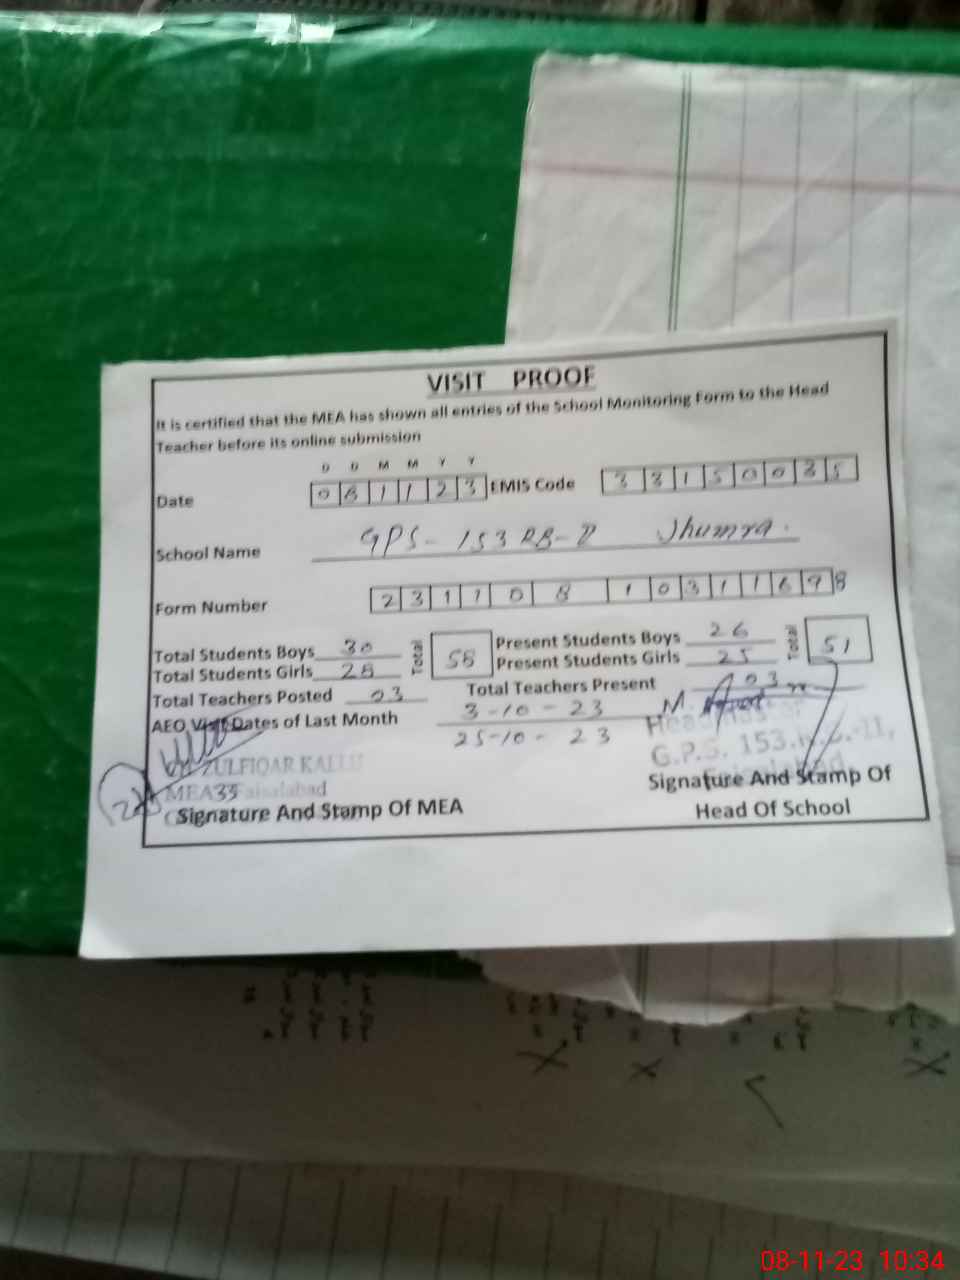 VISIT PROOF
It is certified that the MEA has shown all entries of the School Monitoring Form to the Head
Teacher before its online submission
D D M M Y Y
Date 081123 EMIS Code 33150035
School Name GPS-153 RB-II Jhumra.
Form Number 231108 10311698
Total Students Boys 30 Total 58 Present Students Boys 26 Total 51
Total Students Girls 28 Present Students Girls 25
Total Teachers Posted 03 Total Teachers Present 03
AEO Visit Dates of Last Month 3-10-23
25-10-23
Headmaster
G.P.S. 153.R.B.-II,
Faisalabad
ZULFIQAR
MEA 35 Faisalabad
Signature And Stamp Of MEA
Signature And Stamp Of
Head Of School
08-11-23 10:34